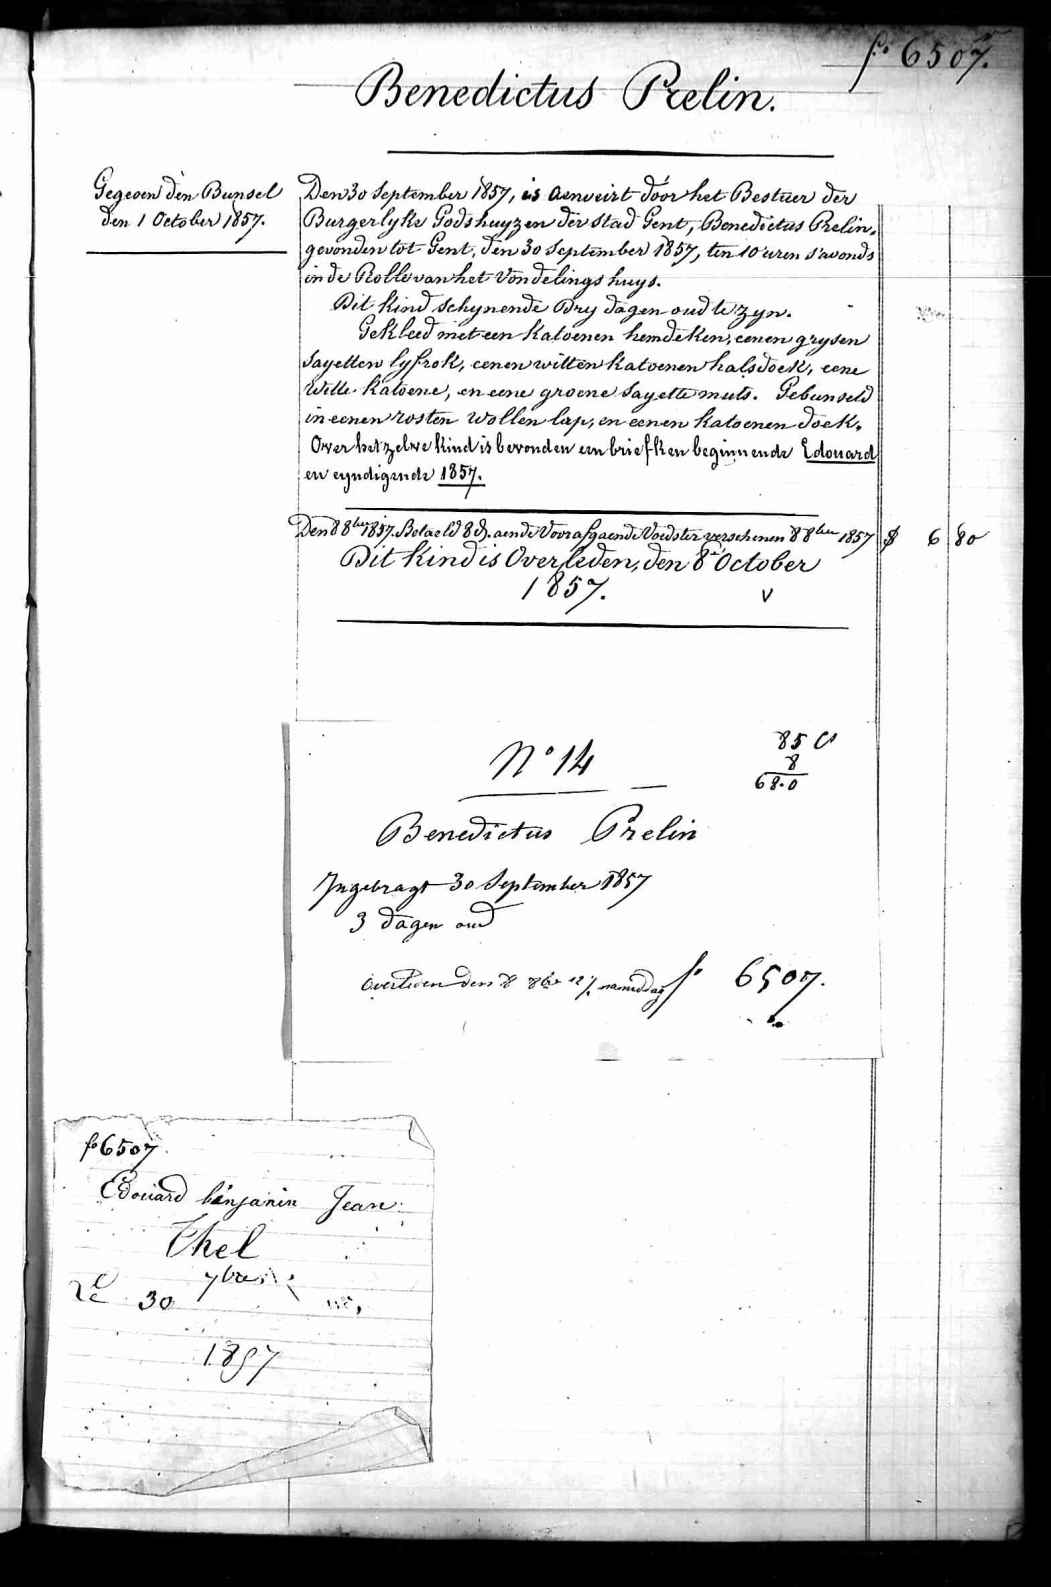 fo 6507.
Benedictus Prelin.
Gegeven den Bunsel
den 1 October 1857.
Den 30 September 1857, is aenveirt door het Bestuer der
Burgerlyke Godshuyzen der stad Gent, Benedictus Prelin,
gevonden tot Gent, den 30 September 1857, ten 10 uren s'avonds
in de Rolle van het Vondelingshuys.
Dit kind schynende Dry dagen oud te zyn.
Gekleed met een katoenen hemdeken, eenen grysen
sayetten lyfrok, eenen witten katoenen halsdoek, eene
witte katoene, en eene groene sayette muts. Gebunseld
in eenen rosten wollen lap, en eenen katoenen doek.
Over hetzelve kind is bevonden een briefken beginnende Edouard
en eyndigende 1857.
Den 8 8ber 1857. Betaeld 8 d. aende Voorafgaende Voedster verschenen 8 8ber 1857 $ 6 80
Dit kind is Overleden, den 8e October
1857. V
No 14
85 Cs
8
68.0
Benedictus Prelin
Ingebragt 30 September 1857
3 dagen oud
overleden den 8 8bre 12 namiddag fo 6507.
fo 6507
Edouard binjanin Jean
Ekel
Le 30 7bre
1857